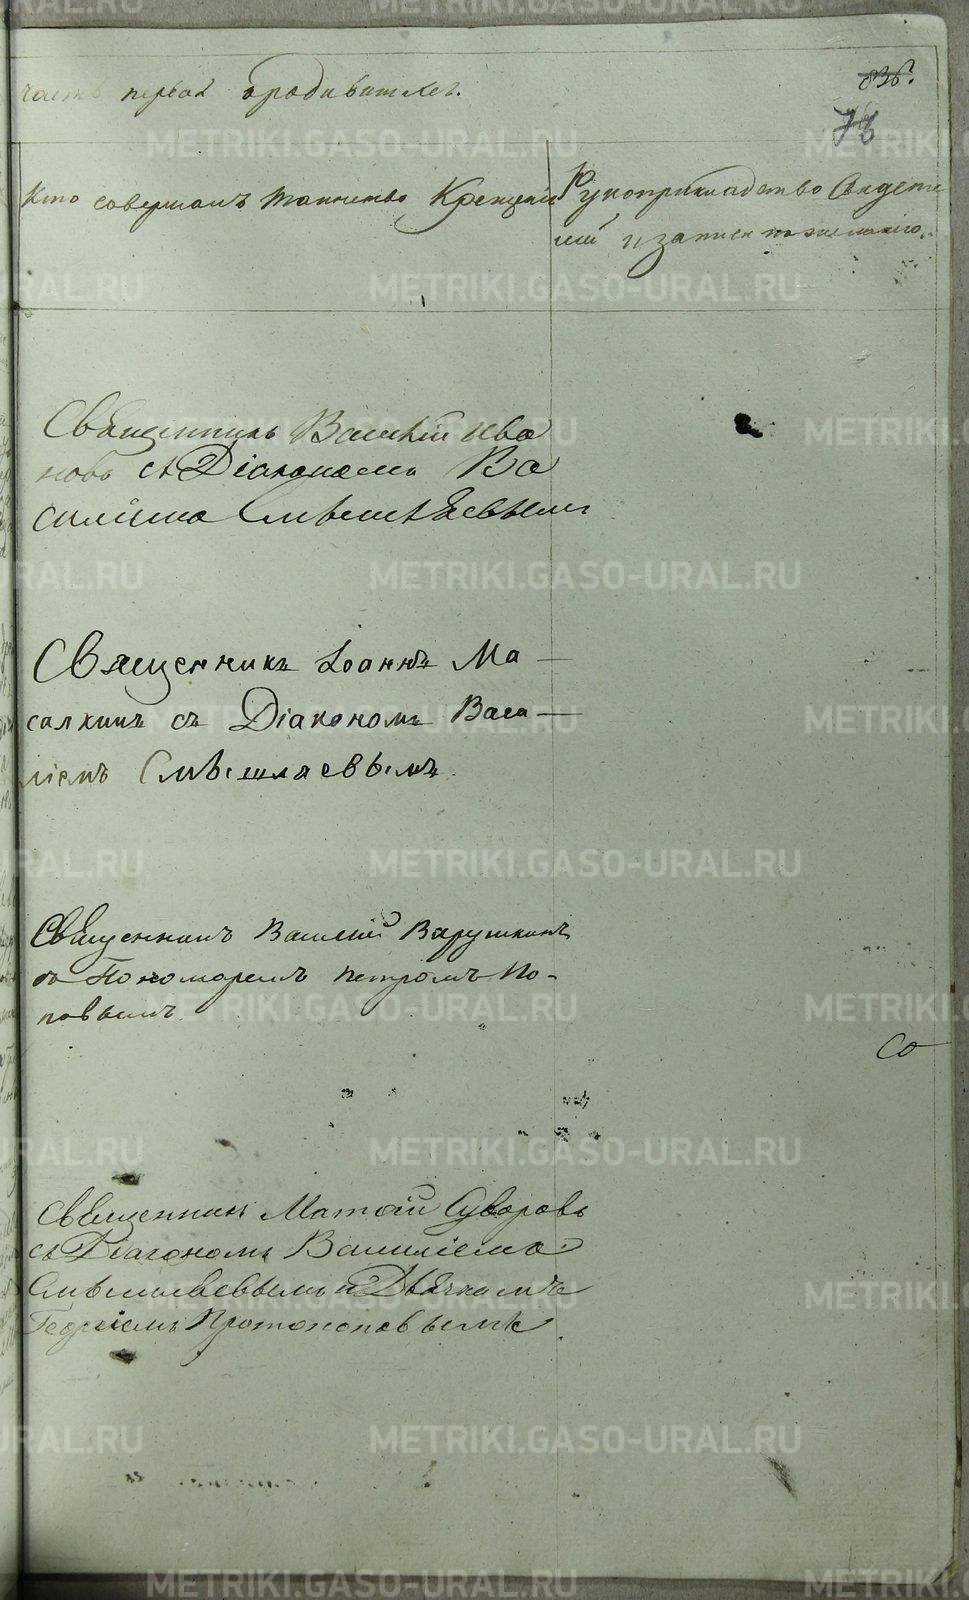 часть первая о родившихся.
836.
78
Кто совершалъ таинство Крещенія
Рукоприкладство Свидете
лей и записи по желанію.
Священникъ Василій Ива
новъ съ Діакономъ Ва
силіемъ Смышляевымъ
Священникъ Іоаннъ Ма
салкинъ съ Діакономъ Васи
ліемъ Смышляевымъ.
Священникъ Василій Варушкинъ
съ Пономаремъ Петромъ По-
повымъ
Со
Священникъ Матѳій Суворовъ
съ Діакономъ Василіемъ
Смышляевымъ и Дьячкомъ
Георгіемъ Протопоповымъ
METRIKI.GASO-URAL.RU